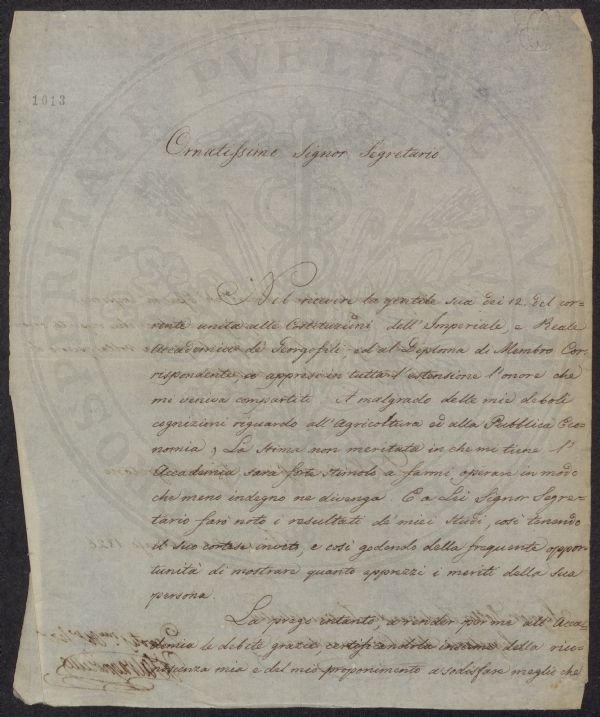 1013
Ornatissimo Signor Segretario
Nel ricevere la gentile sua dei 12. del cor-
rente unita alle Costituzioni dell'Imperiale, e Reale
Accademia de' Georgofili ed al Diploma di Membro Cor-
rispondente, io appresi in tutta l'estensione l'onore che
mi veniva compartito. A malgrado delle mie deboli
cognizioni riguardo all'Agricoltura ed alla Pubblica Eco-
nomia, La stima non meritata in che mi tiene l'
Accademia sarà forte stimolo a farmi operare in modo
che meno indegno ne divenga. E a Lei Signor Segre-
tario farò noto i resultati de' miei studj, così tenendo
il suo cortese invito, e così godendo della frequente oppor-
tunità di mostrare quanto apprezzi i meriti della sua
persona.
La prego intanto a render per me all'Acca-
demia le debite grazie certificandola insieme della rico-
noscenza mia e del mio proponimento a sodisfare meglio che